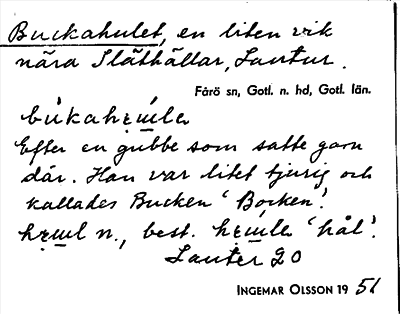 Buckahulet, en liten vik
nära Släthällar, Lautur.
Fårö sn, Gotl. n. hd, Gotl. län.
Efter en gubbe som satte garn
där. Han var litet tjurig och
kallades Bucken 'Bocken'.
n., best. 'hål'.
Lauter 20
INGEMAR OLSSON 19 51